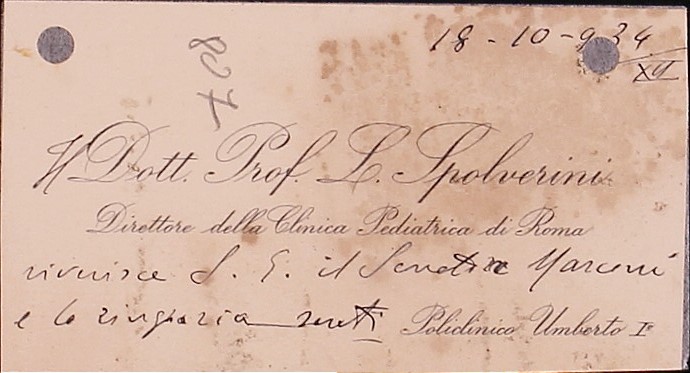 18-10-934
XII
807
Il Dott. Prof. L. Spolverini
Direttore della Clinica Pediatrica di Roma
riverisce S. E. il Senatore Marconi
e lo ringrazia
Policlinico Umberto I°